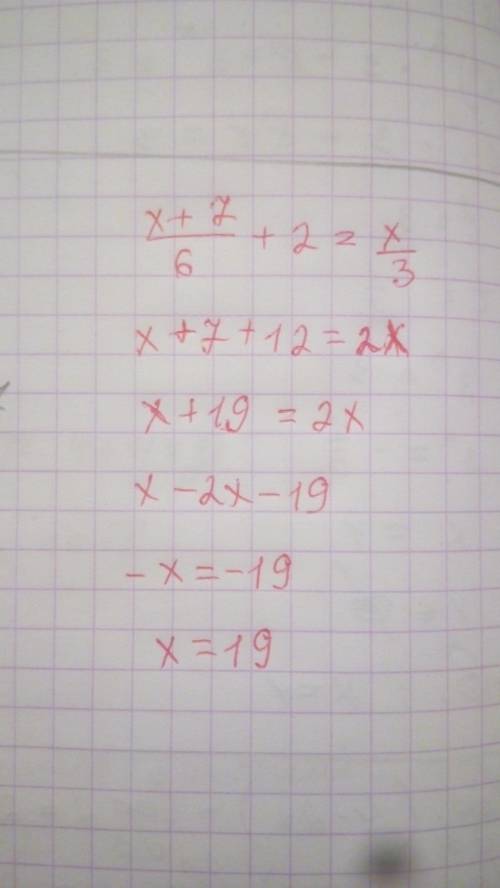 x + 7 / 6 + 2 = x / 3
x + 7 + 12 = 2x
x + 19 = 2x
x - 2x - 19
- x = - 19
x = 19